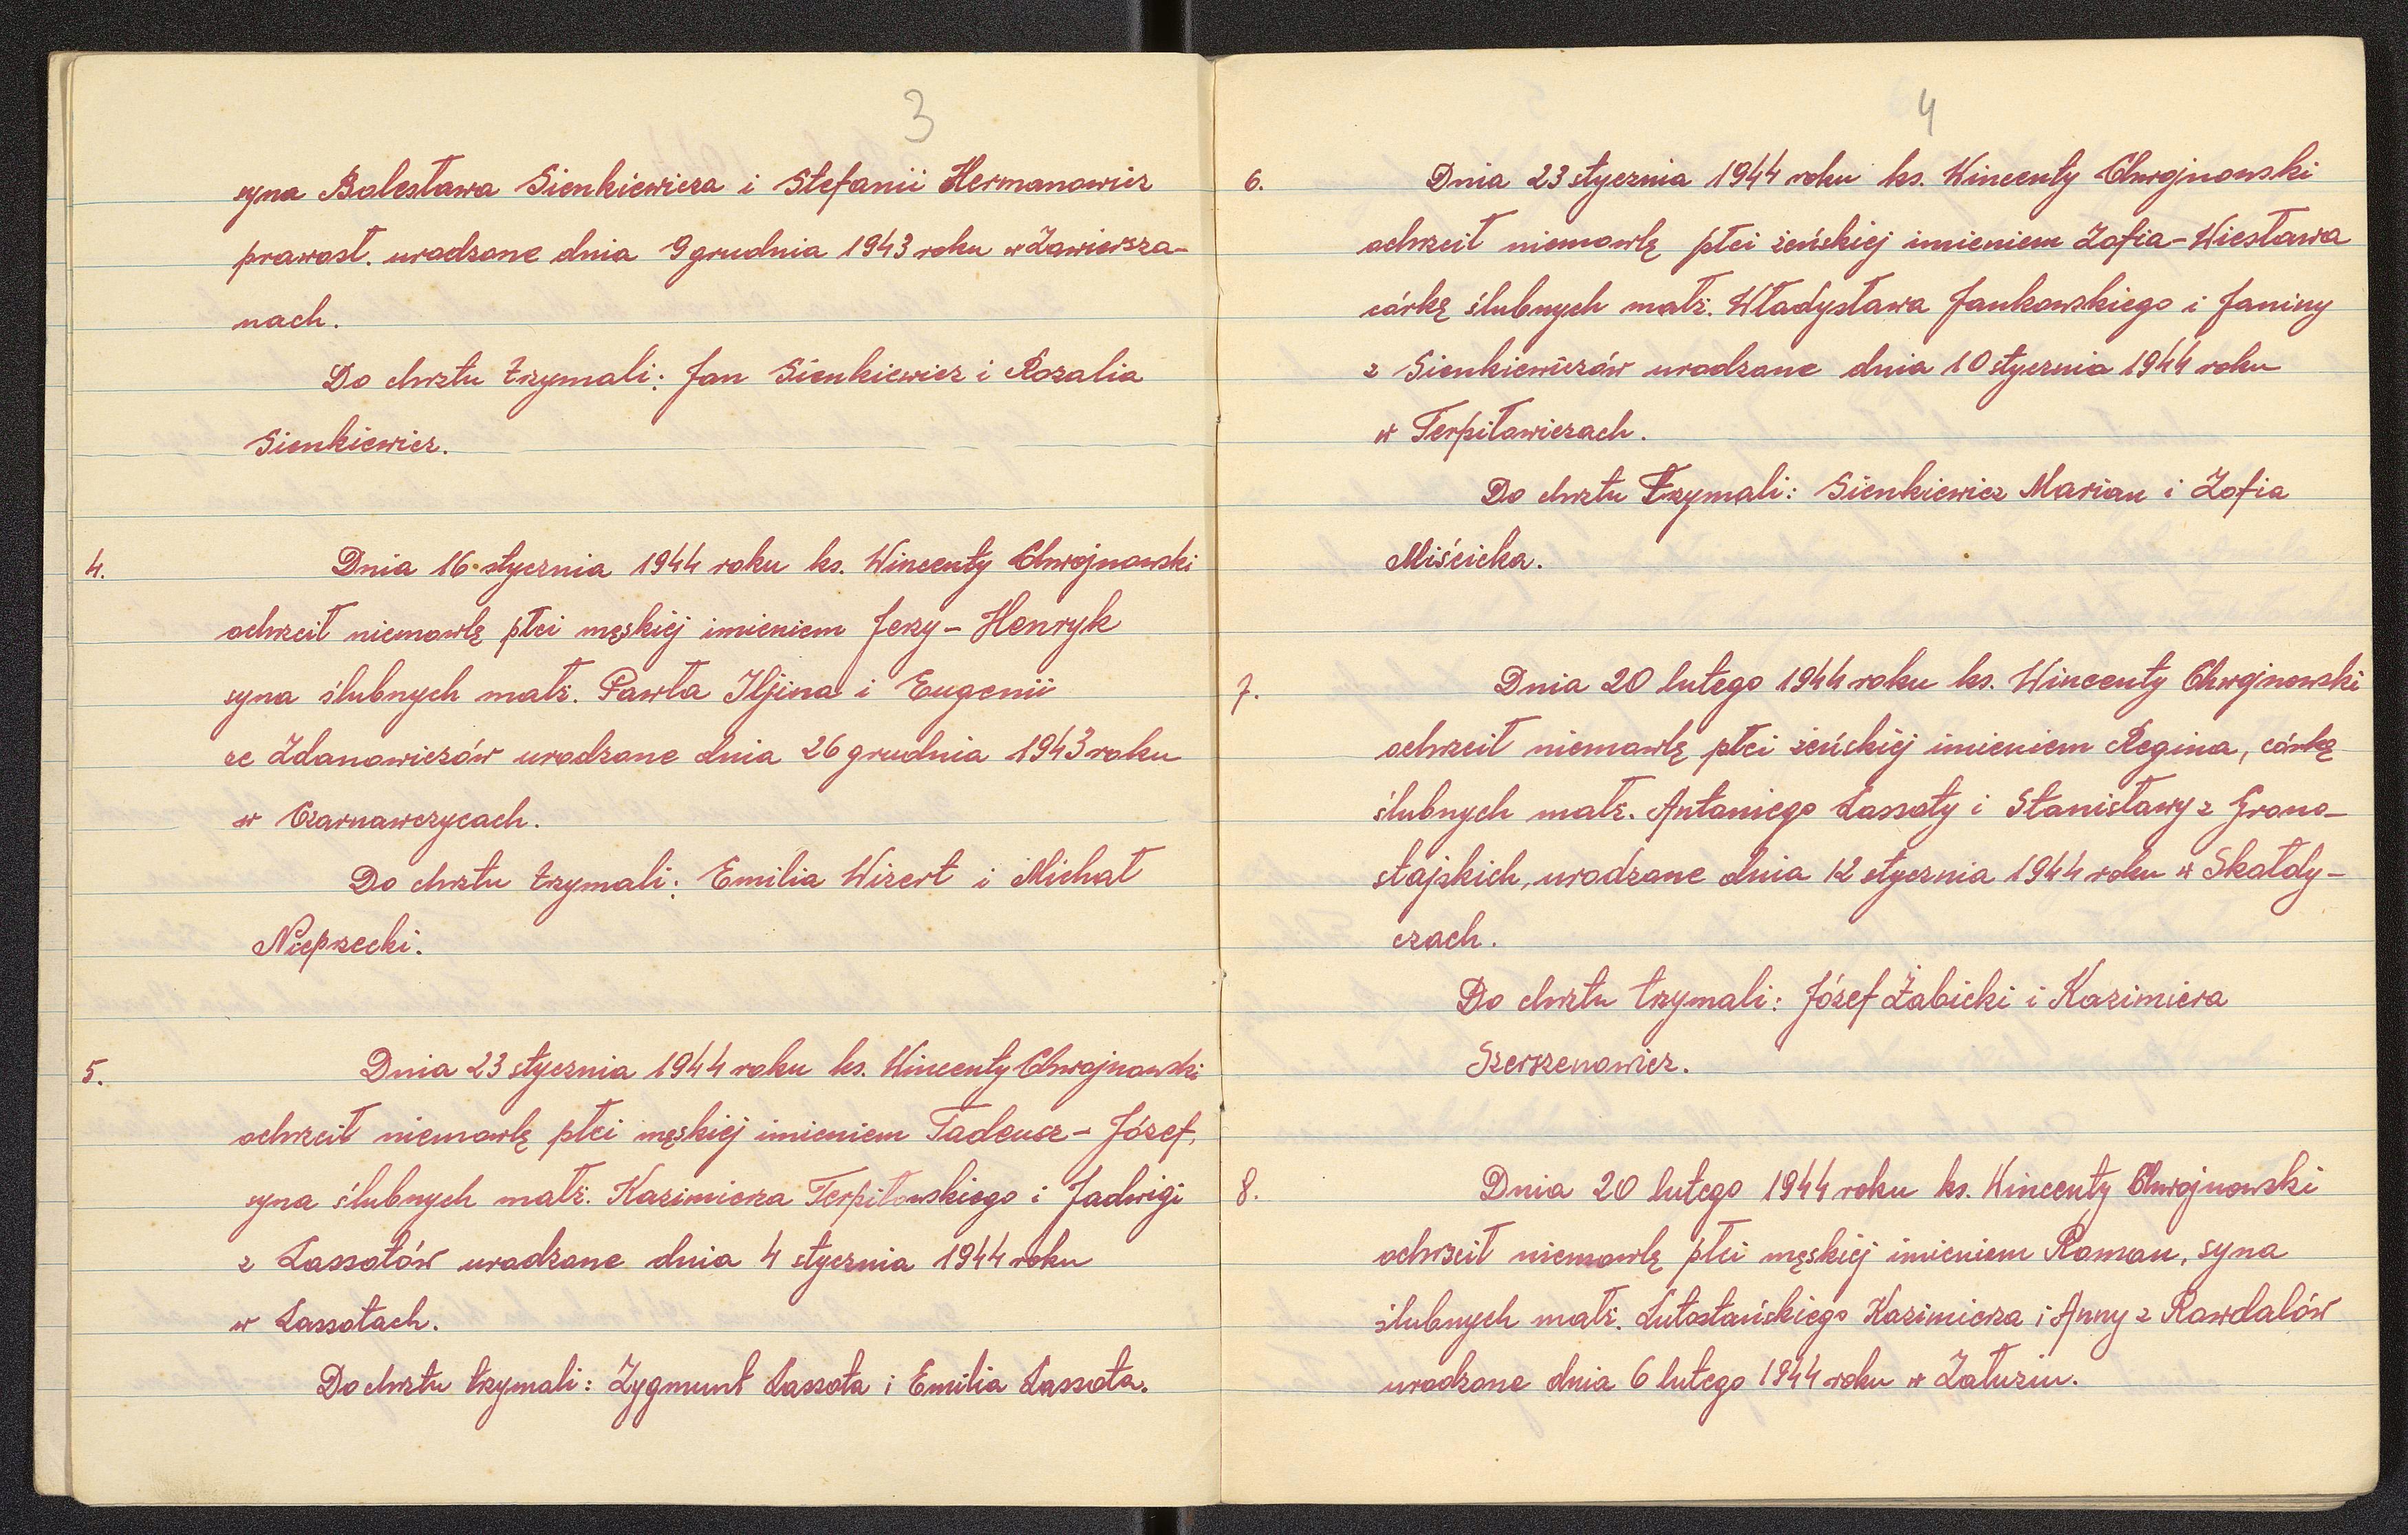 3
syna Bolesława Sienkiewicza i Stefanii Hermanowicz
prawosł. urodzone dnia 9 grudnia 1943 roku w Zawiersza-
nach.
Do chrztu trzymali: Jan Sienkiewicz i Rozalia
Sienkiewicz.
4. Dnia 16 stycznia 1944 roku ks. Wincenty Chwojnowski
ochrzcił niemowlę płci męskiej imieniem Jerzy - Henryk
syna ślubnych małż. Pawła Iljina i Eugenii
ze Zdanowiczów urodzone dnia 26 grudnia 1943 roku
w Czarnawczycach.
Do chrztu trzymali: Emilia Wizert i Michał
Nieprzecki.
5. Dnia 23 stycznia 1944 roku ks. Wincenty Chwojnowski
ochrzcił niemowlę płci męskiej imieniem Tadeusz - Józef,
syna ślubnych małż. Kazimierza Terpiłowskiego i Jadwigi
z Lassotów urodzone dnia 4 stycznia 1944 roku
w Lassotach.
Do chrztu trzymali: Zygmunt Lassota i Emilia Lassota.
4
6. Dnia 23 stycznia 1944 roku ks. Wincenty Chwojnowski
ochrzcił niemowlę płci żeńskiej imieniem Zofia - Wiesława
córkę ślubnych małż. Władysława Jankowskiego i Janiny
z Sienkiewiczów urodzone dnia 10 stycznia 1944 roku
w Terpiłowiczach.
Do chrztu trzymali: Sienkiewicz Marian i Zofia
Miścicka.
7. Dnia 20 lutego 1944 roku ks. Wincenty Chwojnowski
ochrzcił niemowlę płci żeńskiej imieniem Regina, córkę
ślubnych małż. Antoniego Lassoty i Stanisławy z Grono-
stajskich, urodzone dnia 12 stycznia 1944 roku w Skołdy-
czach.
Do chrztu trzymali: Józef Żabicki i Kazimiera
Szerszenowicz.
8. Dnia 20 lutego 1944 roku ks. Wincenty Chwojnowski
ochrzcił niemowlę płci męskiej imieniem Roman, syna
ślubnych małż. Lutostańskiego Kazimierza i Anny z Rowdalów
urodzone dnia 6 lutego 1944 roku w Załuziu.